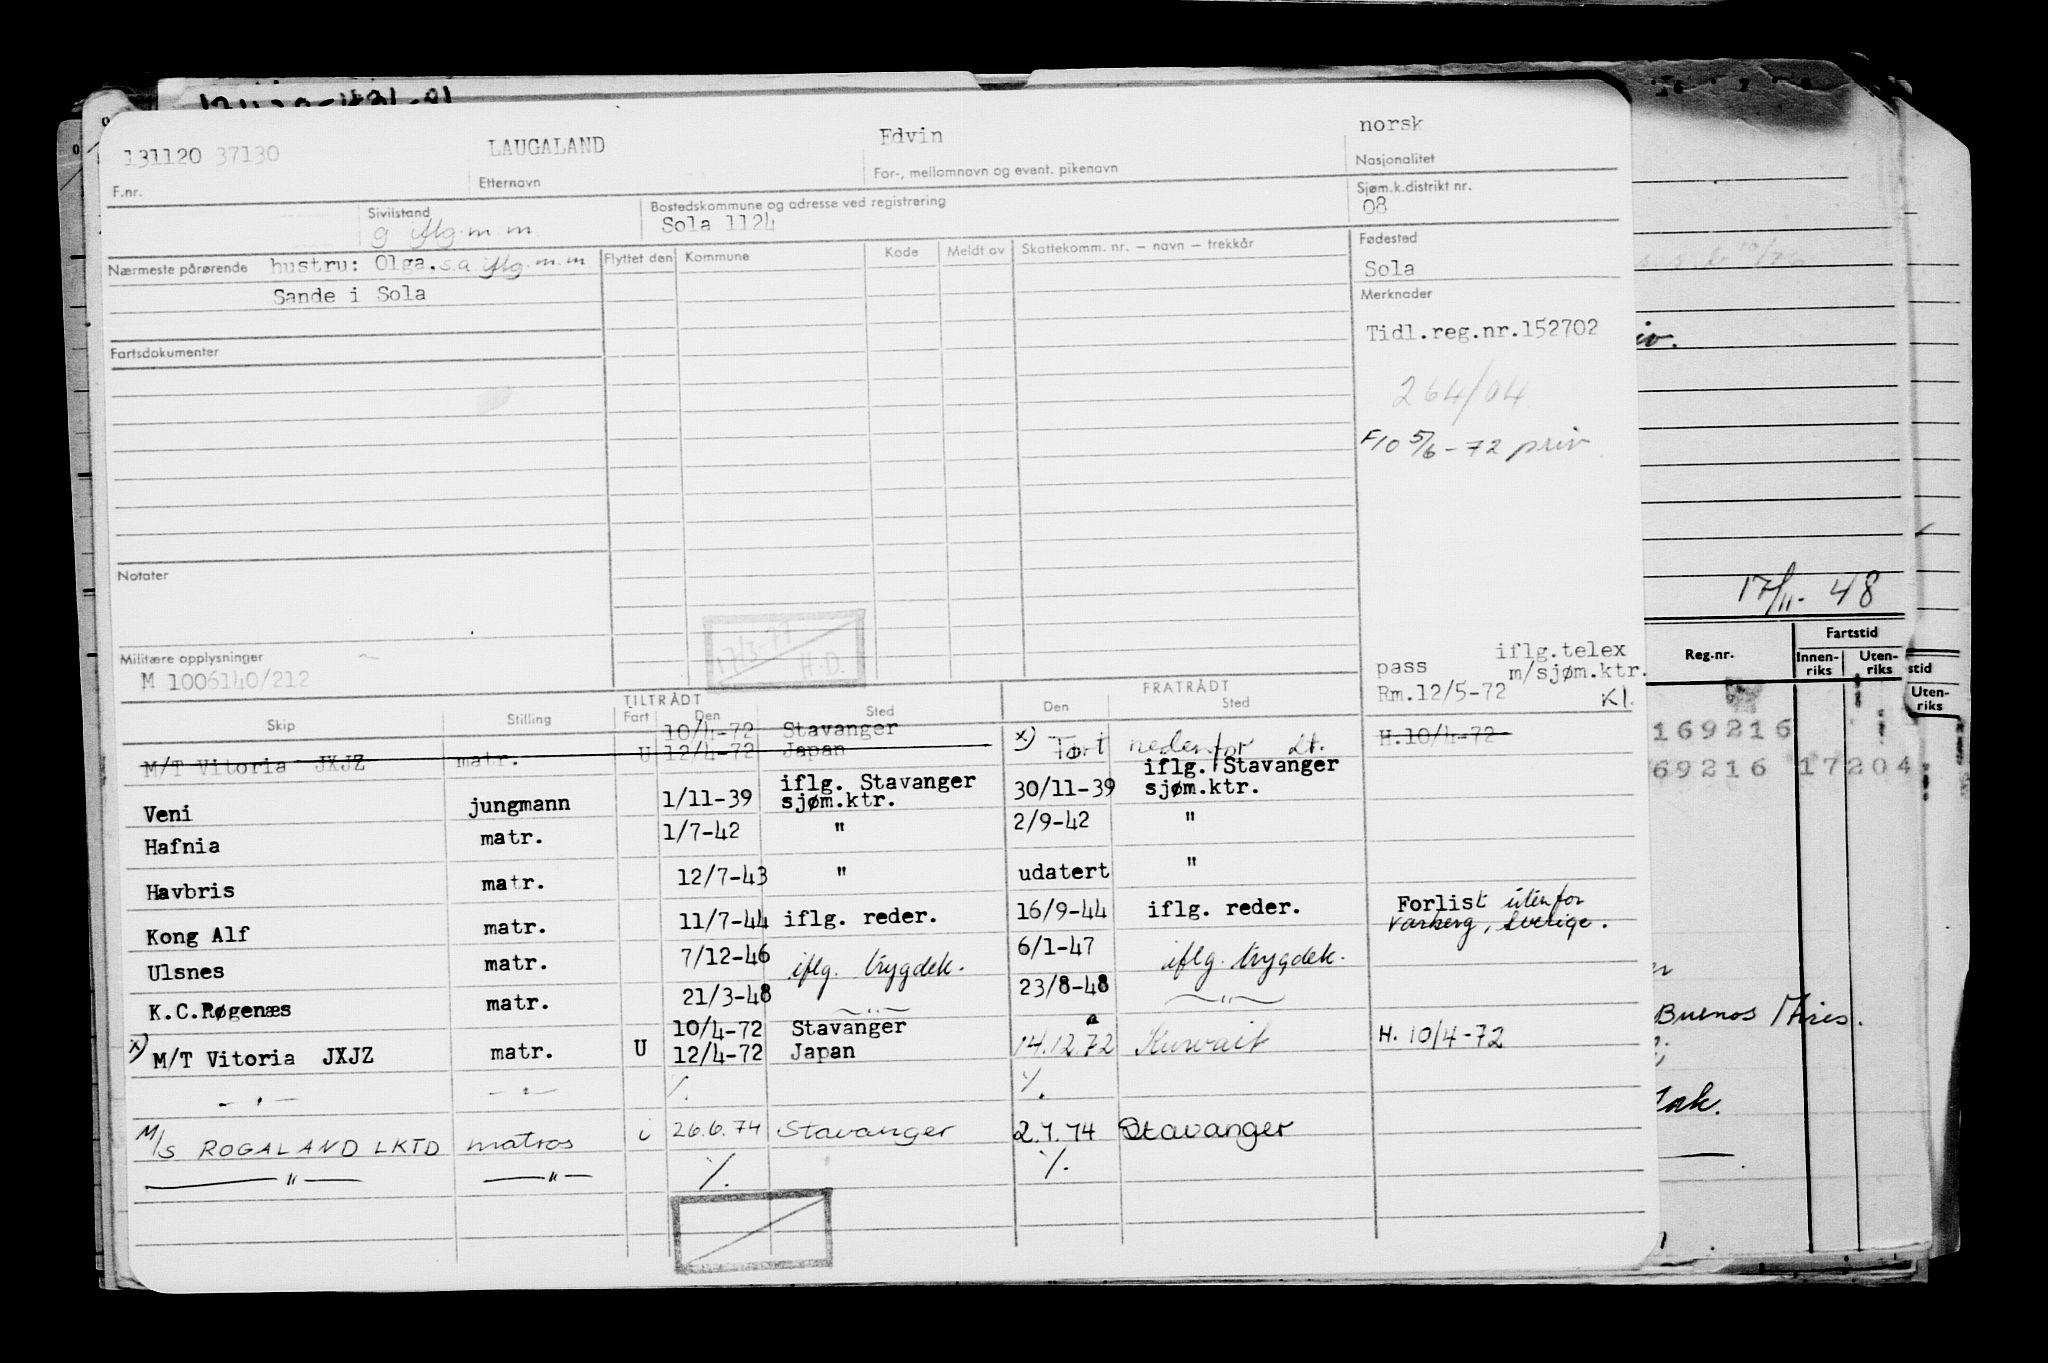 131120 37130 LAUGALAND Edvin norsk
F.nr. Etternavn For-, mellomnavn og event. pikenavn Nasjonalitet
Sivilstand Bostedskommune og adresse ved registrering Sjøm.k.distrikt nr.
g iflg. m m Sola 1124 08
Nærmeste pårørende hustru: Olga, s.a. iflg. m.m. Flyttet den Kommune Kode Meldt av Skattekomm. nr. – navn – trekkår Fødested
Sande i Sola Sola
Merknader
Fartsdokumenter Tidl.reg.nr.152702
264/04
F10 5/6-72 priv
Notater
17/11-48
17/3-77 H.D.
Militære opplysninger
M 1006140/212
pass iflg.telex
Rm.12/5-72 m/sjøm.ktr.
Kl.
TILTRÅDT FRATRÅDT
Skip Stilling Fart Den Sted Den Sted
10/4-72 Stavanger
M/T Vitoria JXJZ matr. U 12/4-72 Japan x) Ført nedenfor Lt. H.10/4-72
Veni jungmann 1/11-39 iflg. Stavanger sjøm.ktr. 30/11-39 iflg. Stavanger sjøm.ktr.
Hafnia matr. 1/7-42 " 2/9-42 "
Havbris matr. 12/7-43 " udatert "
Kong Alf matr. 11/7-44 iflg. reder. 16/9-44 iflg. reder. Forlist utenfor Varberg, Sverige.
Ulsnes matr. 7/12-46 iflg. trygdek. 6/1-47 iflg. trygdek.
K.C.Røgenæs matr. 21/3-48 — " — 23/8-48 — " —
10/4-72 Stavanger
x) M/T Vitoria JXJZ matr. U 12/4-72 Japan 14.12.72 Kuwait H. 10/4-72
— " — — " — ./. ./.
M/S ROGALAND LKTD matros i 26.6.74 Stavanger 2.7.74 Stavanger
— " — — " — ./. ./.
Reg.nr. Fartstid
Innen-riks Uten-riks
stid
Uten-riks
169216
69216 17204
Buenos Aires.